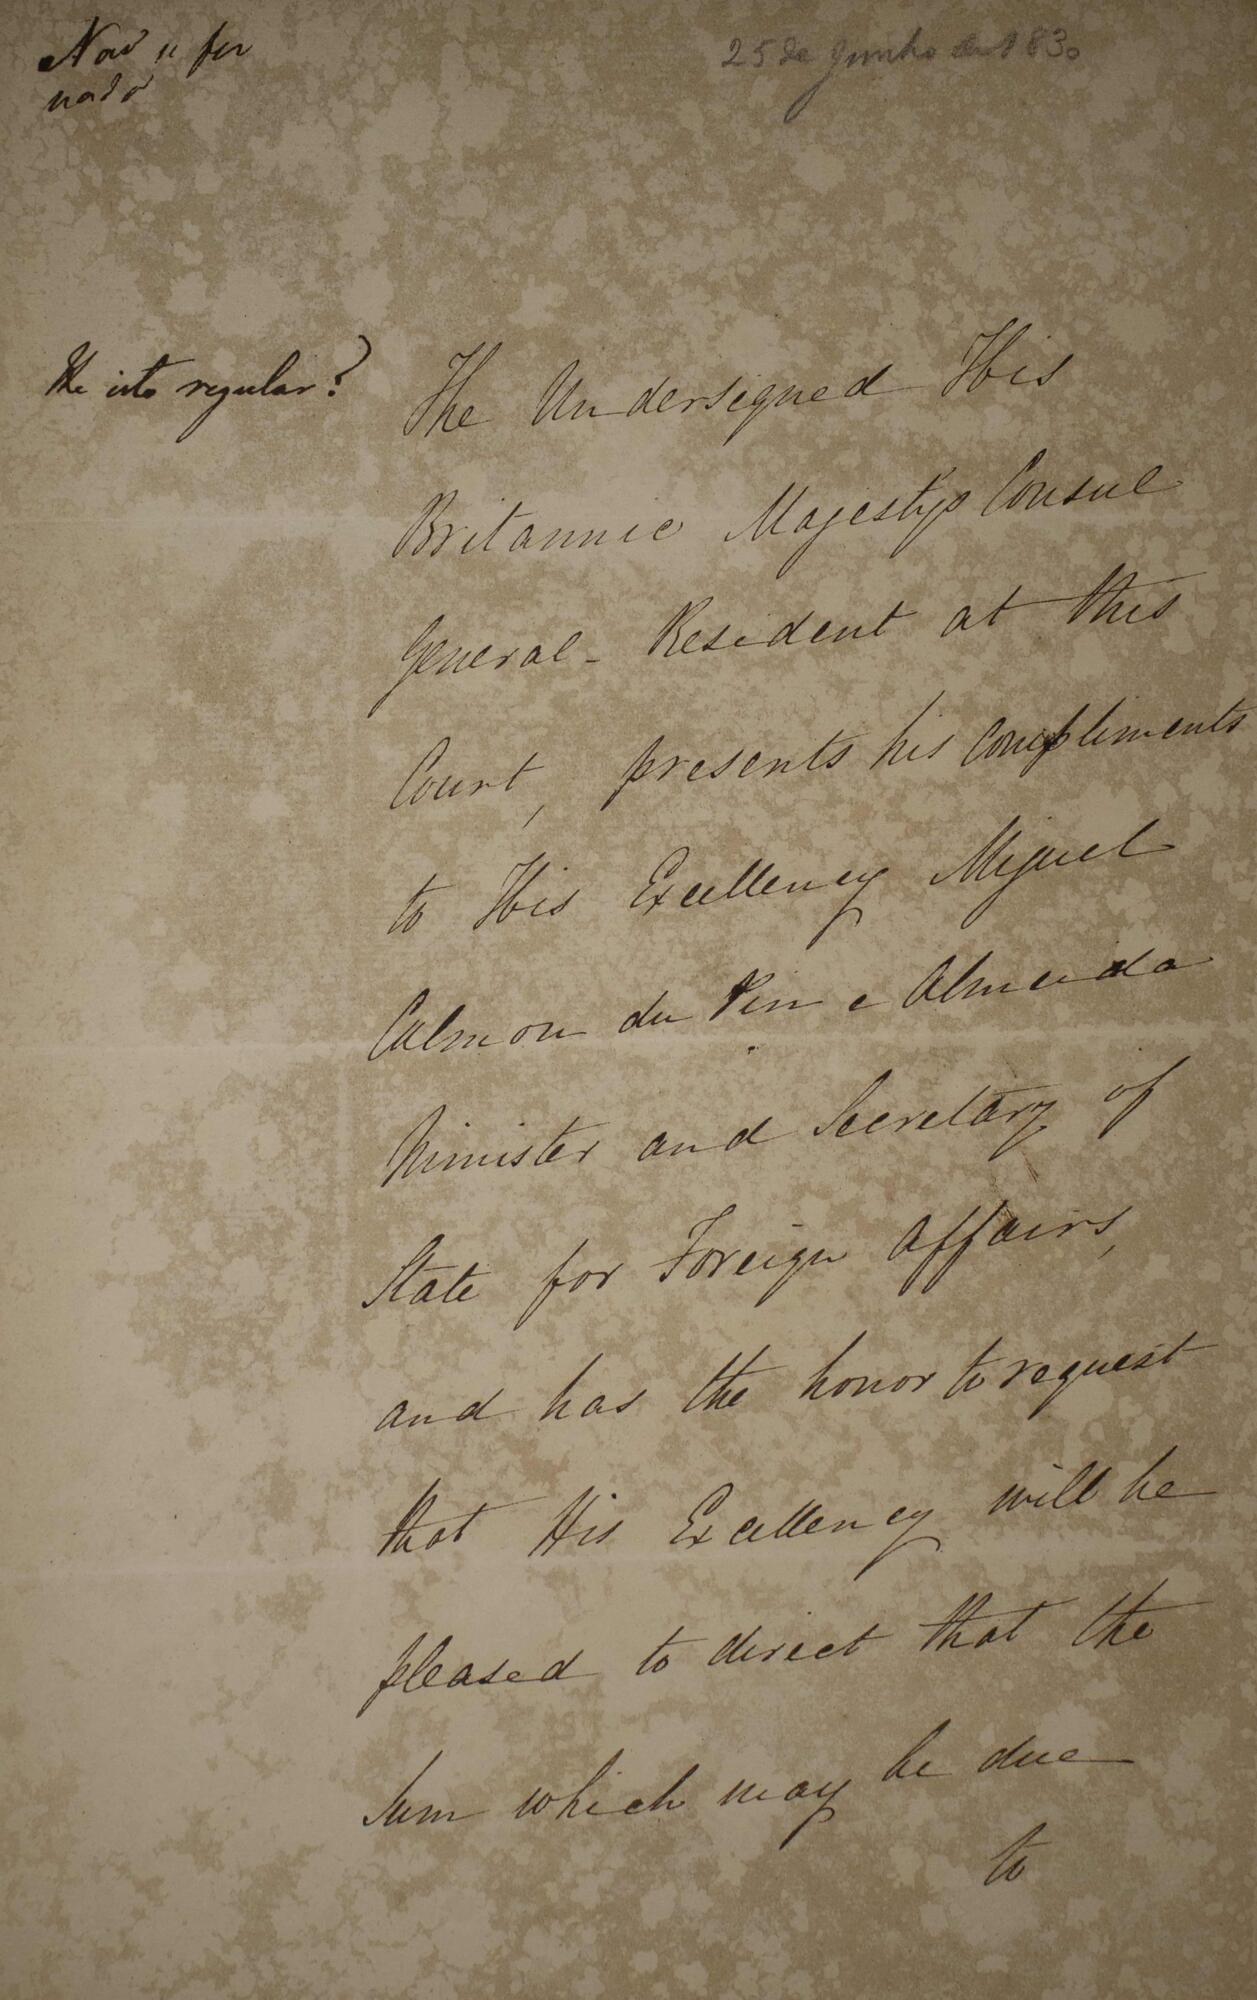 Não se fez
nada
25 de Junho de 1830
He isto regular?
The Undersigned His
Britannic Majesty's Consul
General - Resident at this
Court, presents his Compliments
to His Excellency Miguel
Calmon du Pin e Almeida
Minister and Secretary of
State for Foreign Affairs,
and has the honor to request
that His Excellency will be
pleased to direct that the
Sum which may be due
to